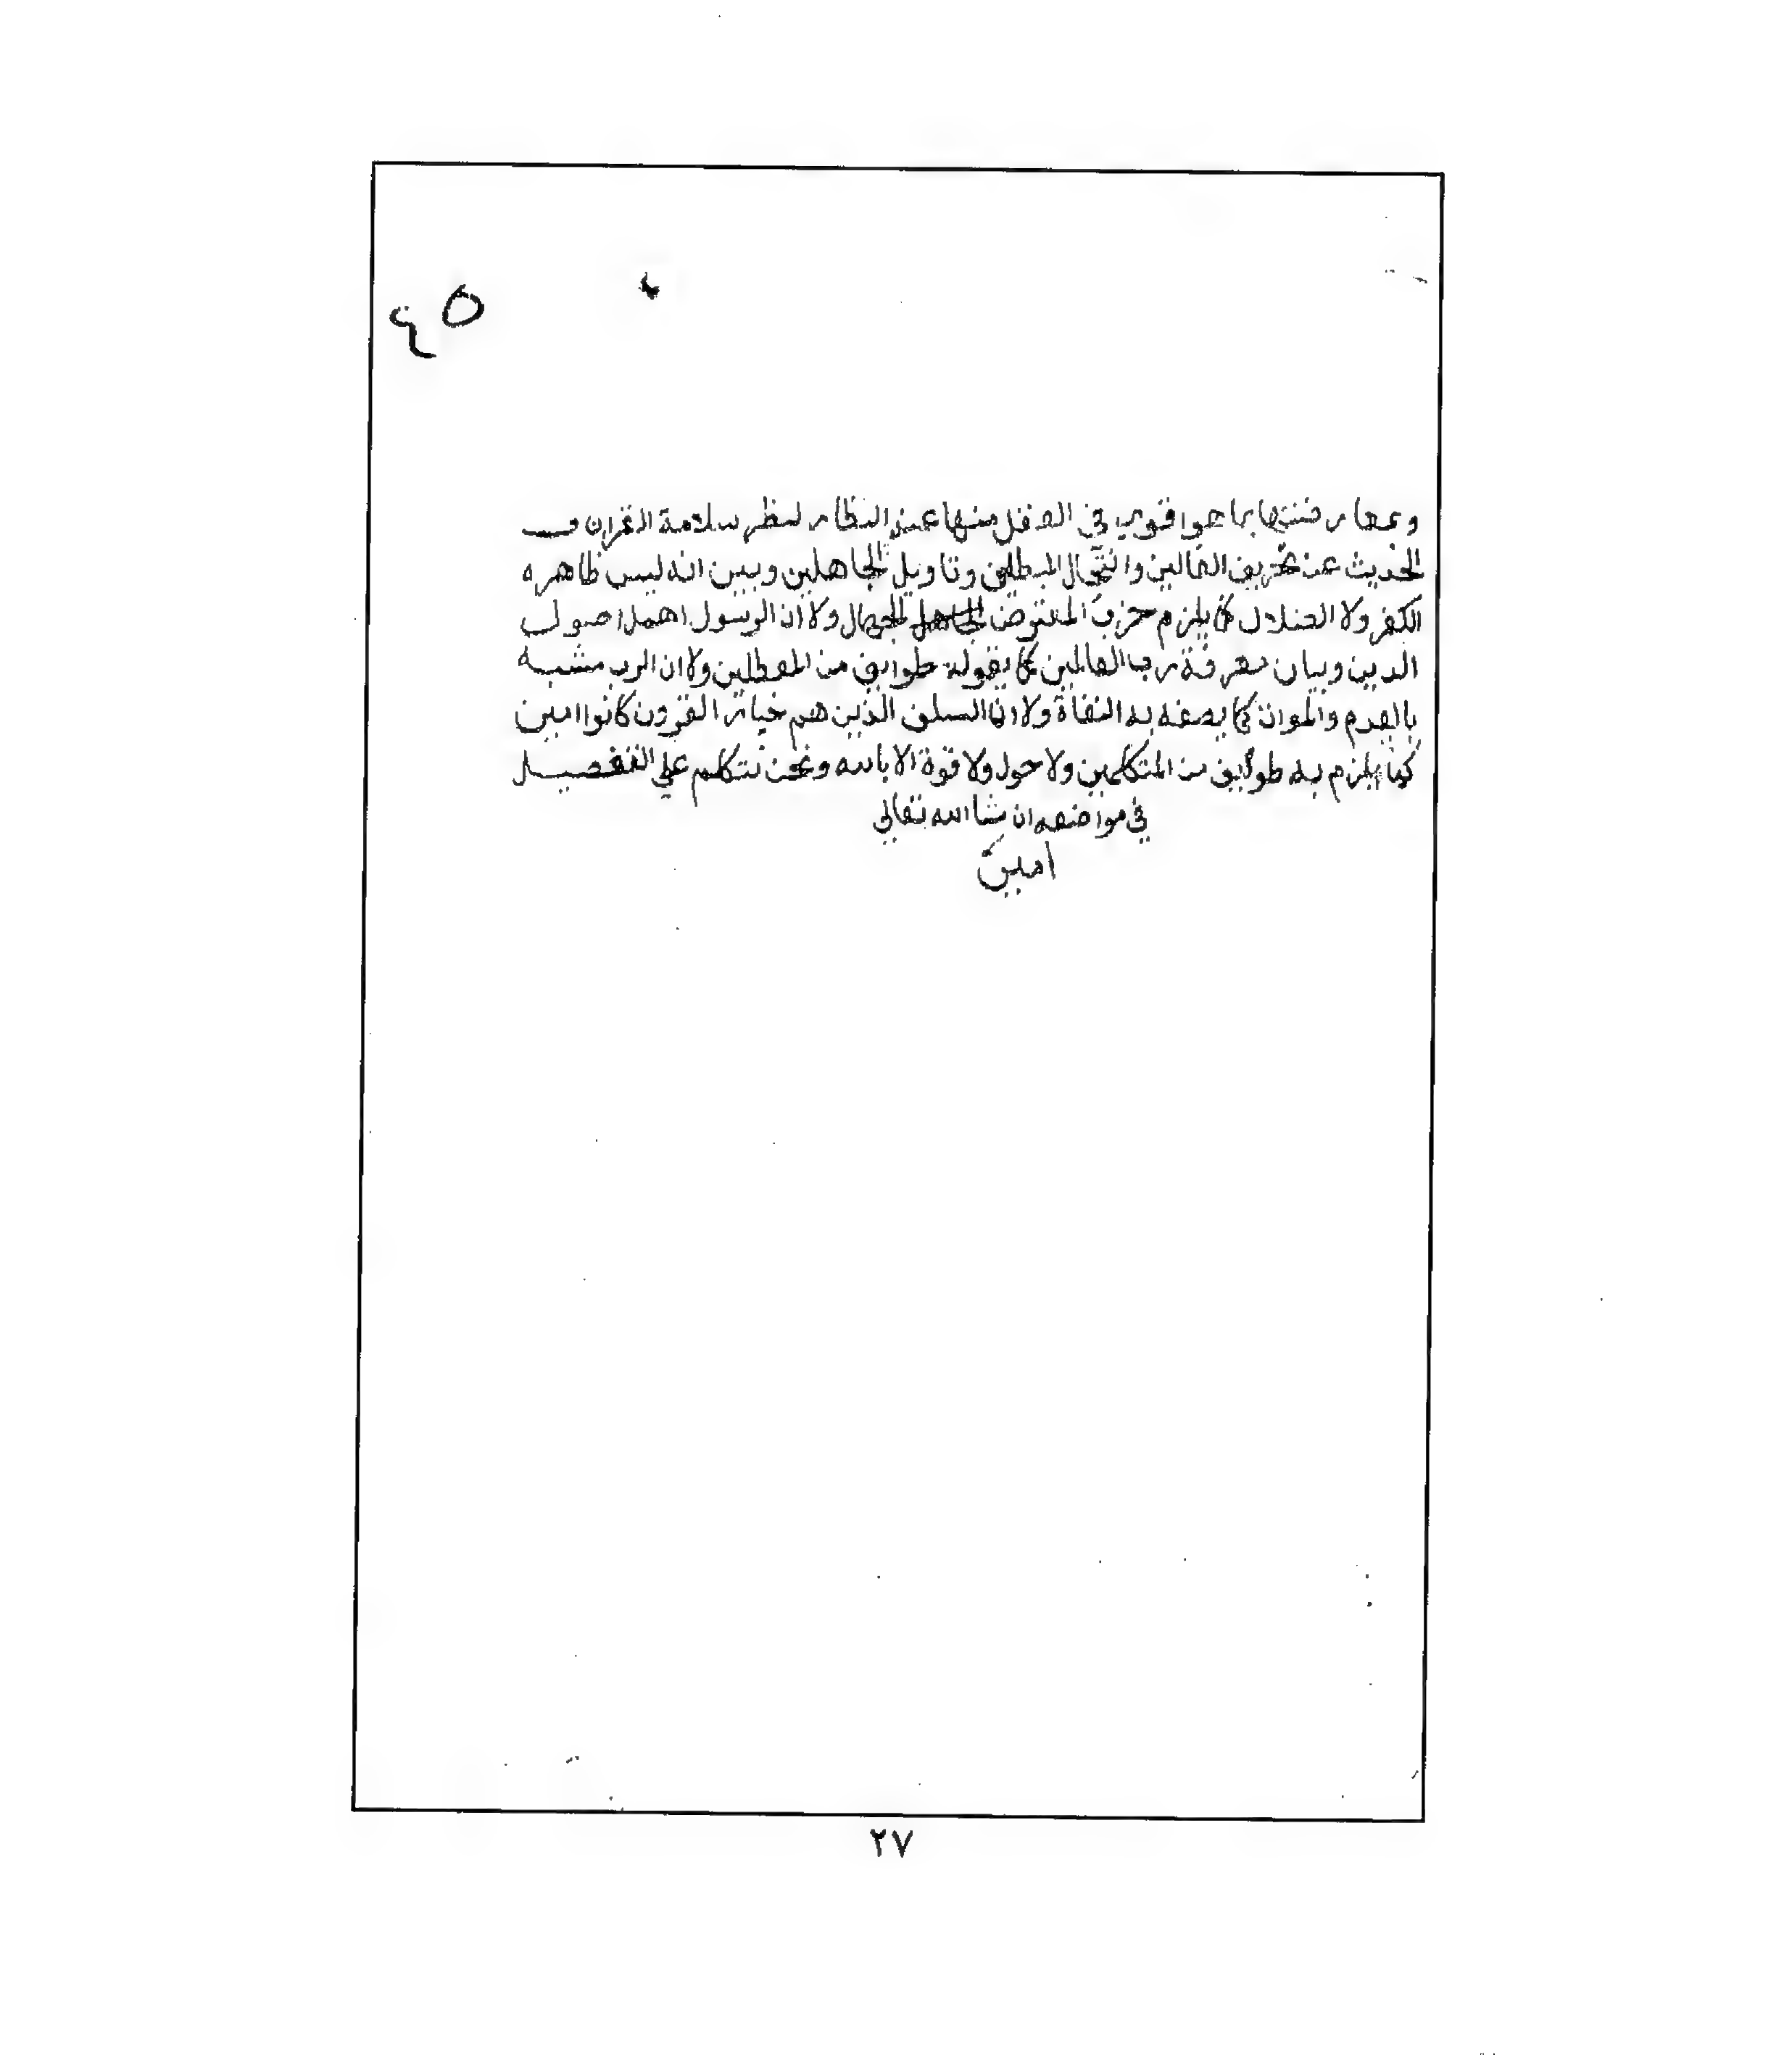 ٤٥
وبمعارضتها بما هوا قوي في العقل منها عند النظار لتظهر سلامة القران و
الحديث عن تحريف الغالين وانتحال المبطلين وتاويل الجاهلين ويبين انه ليس ظاهره
الكفر ولا الضلال كما يلزم حزب المعترض الجهال ولا ان الرسول اهمل اصول
الدين وبيان معرفة رب العالمين كما يقوله طوايف من المعطلين ولا ان الرب مشبه
بالعدم والموات كما يصفه به النفاة ولا ان السلف الذين هم خيار القرون كانوا اميين
كما يلزم به طوايف من المتكلمين ولا حول ولا قوة الا بالله ونحن نتكلم علي التفصيل
في مواضعه ان شا الله تعالي
امين
٢٧